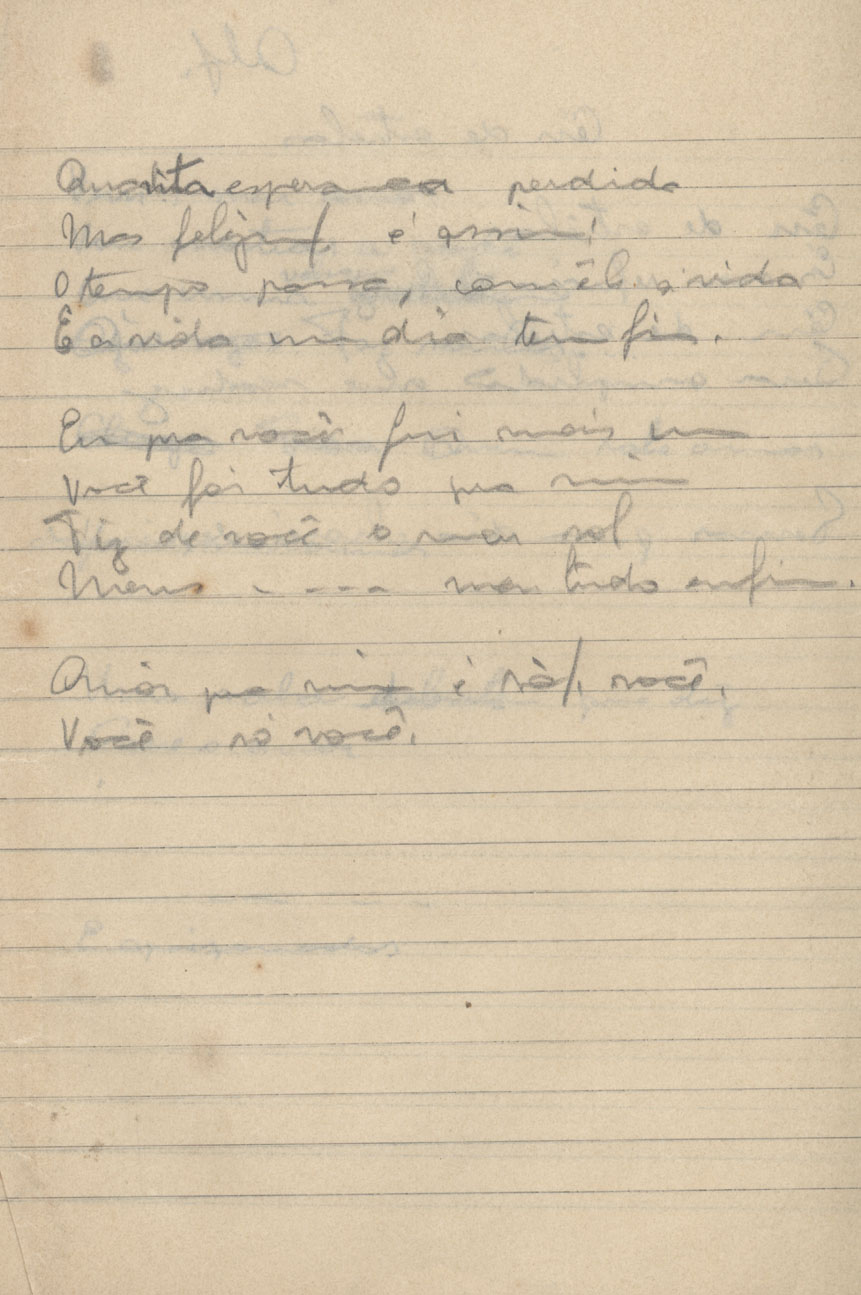 Quanta esperança perdida
Mas felizm/ é assim!
O tempo passa, com êle a vida
E a vida um dia tem fim.
Eu pra você fui mais um
Você foi tudo pra mim
Fiz de você o meu sol
Meus - - - - meu tudo enfim.
Amor pra mim é só/. você.
Você só você.